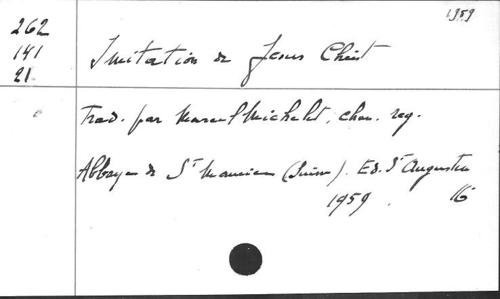 1959
262
141
21
Imitation de Jesus Christ
Trad. par Marcel Michelet, chan. reg.
Abbaye de St Maurice (Suisse). Ed. St Augustin
1959. 16